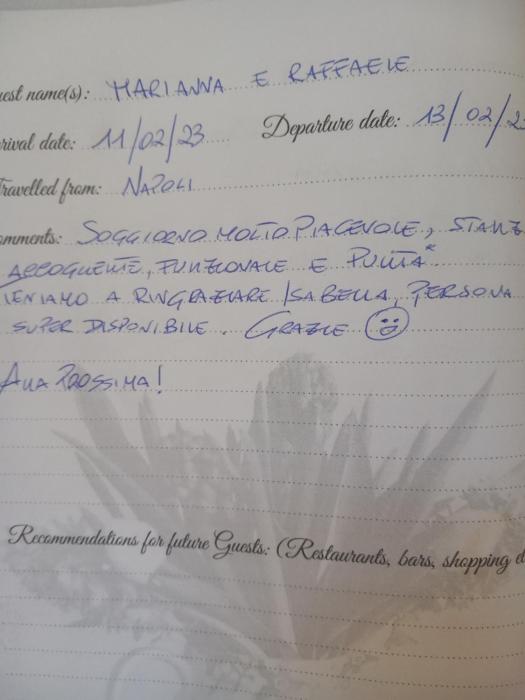 uest name(s): MARIANNA E RAFFAELE
rival date: 11/02/23 Departure date: 13/02/2
Travelled from: NAPOLI
omments: SOGGIORNO MOLTO PIACEVOLE, STANZ
ACCOGLIENTE, FUNZIONALE E PULITA*
IENIAMO A RINGRAZIARE ISABELLA, PERSONA
SUPER DISPONIBILE. GRAZIE ☺
ALLA PROSSIMA!
Recommendations for future Guests: (Restaurants, bars, shopping